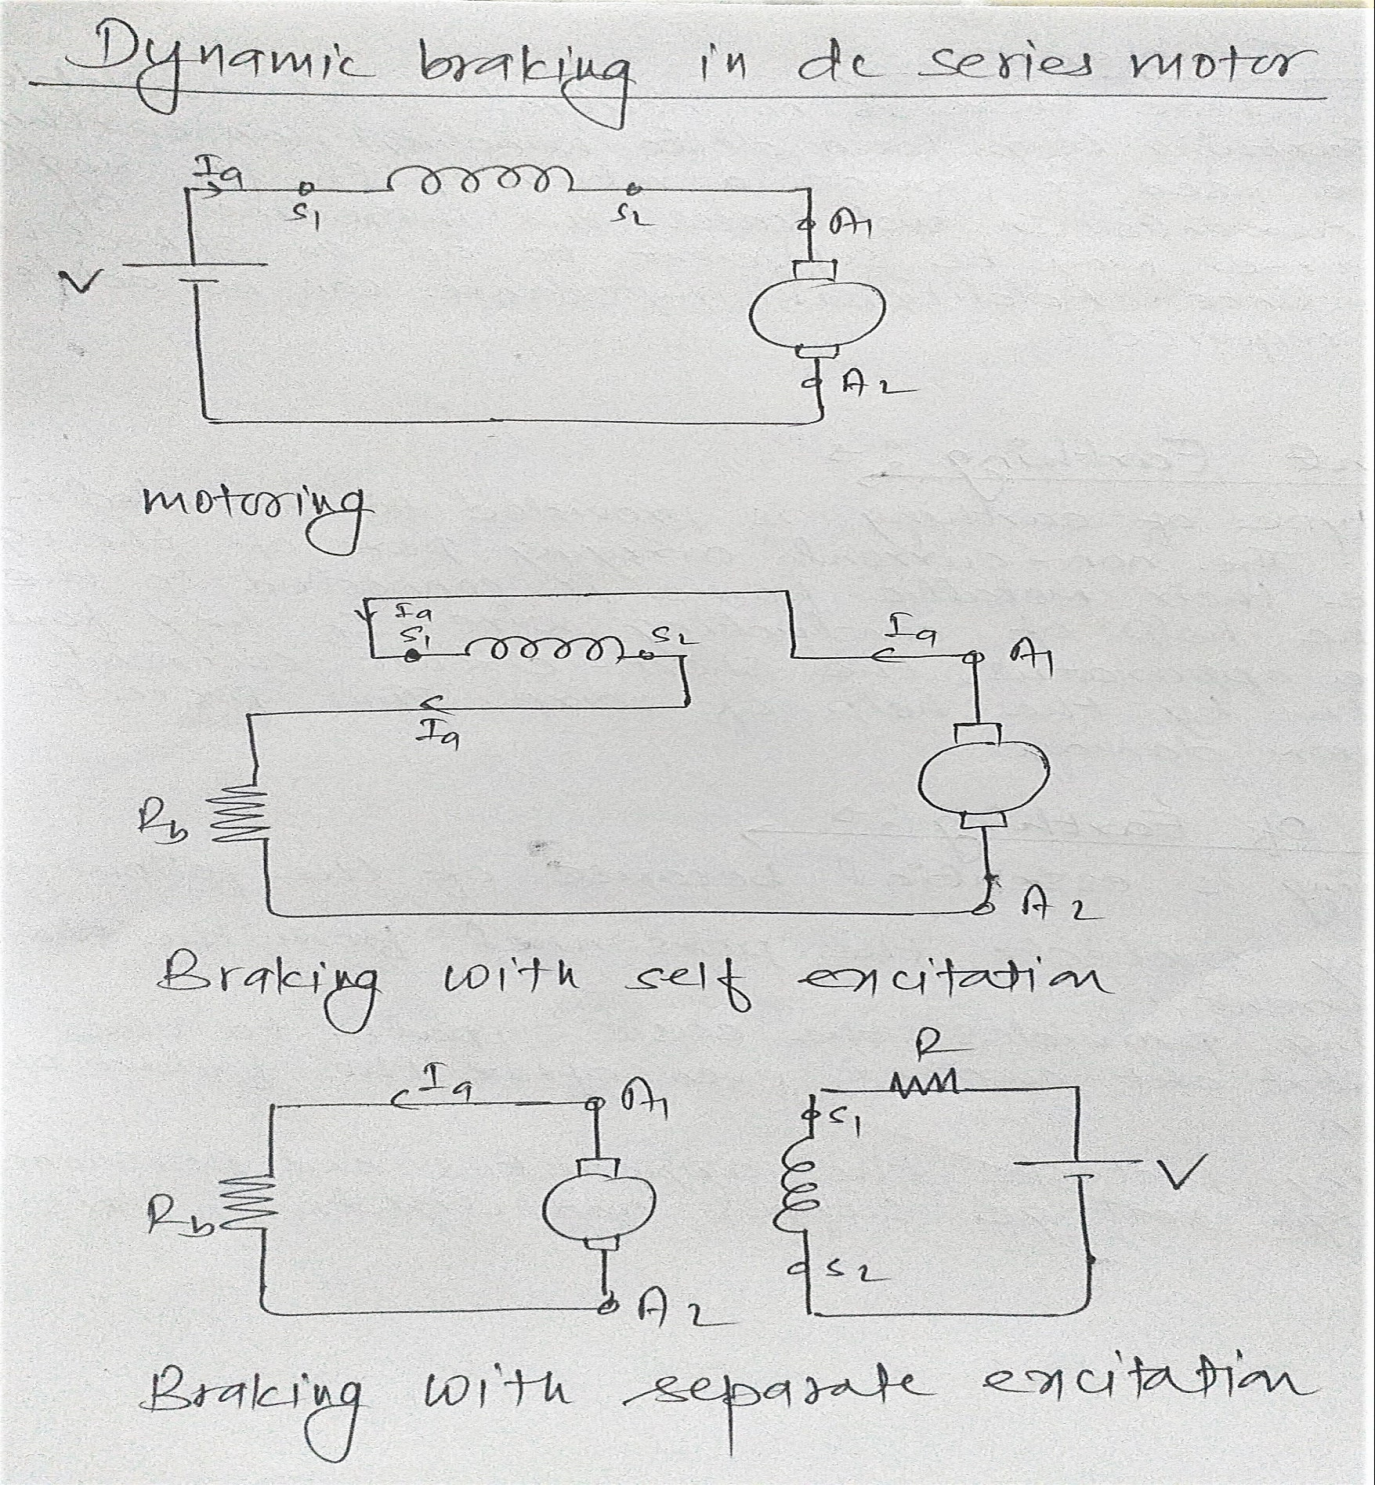 Dynamic braking in dc series motor
Ia
S1 S2
A1
V
A2
motoring
Ia
S1 S2
Ia
A1
Ia
Rb
A2
Braking with self excitation
R
Ia
A1
S1
V
Rb
S2
A2
Braking with separate excitation